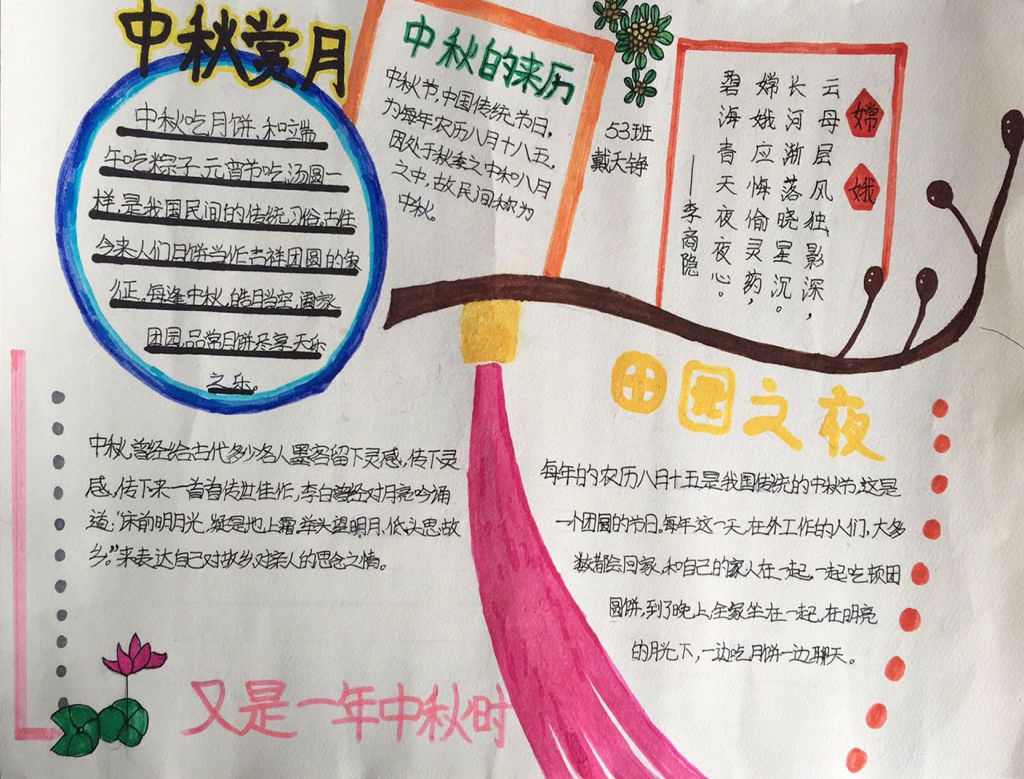 中秋赏月
中秋吃月饼,和端
午吃粽子,元宵节吃汤圆一
样,是我国民间的传统习俗,古往
今来人们月饼当作吉祥团圆的象
征,每逢中秋,皓月当空,阖家
团园,品常月饼尽享天乐
之乐。
中秋的来历
中秋节,中国传统节日,
为每年农历八月十八五,
因处于秋季之中和八月
之中,故民间称为
中秋。
53班
戴天铮
嫦娥
云母层风独影深,
长河渐落晓星沉。
嫦娥应悔偷灵药,
碧海青天夜夜心。
——李商隐
中秋,曾经给古代多少名人墨客留下灵感,传下灵
感,传下来一首首传世佳作,李白曾经对月亮吟诵
道,“床前明月光,疑是地上霜,举头望明月,低头思故
乡。”来表达自己对故乡对亲人的思念之情。
田园之夜
每年的农历八月十五是我国传统的中秋节,这是
一个团圆的节日,每年这一天,在外工作的人们,大多
数都会回家,和自己的家人在一起,一起吃顿团
圆饼,到了晚上,全家坐在一起,在明亮
的月光下,一边吃月饼一边聊天。
又是一年中秋时